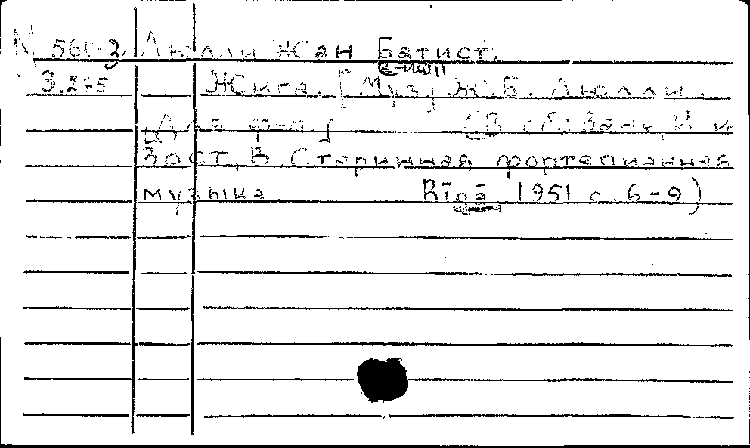 N 561-3 Люлли Жан Батист.
3.245 Жига. [Муз] Ж.Б. Люлли.
[Для ф-п.] (В сб: Зенг, И и
Заст, В. Старинная фортепианная
музыка Rīgā 1951 с 6-9)